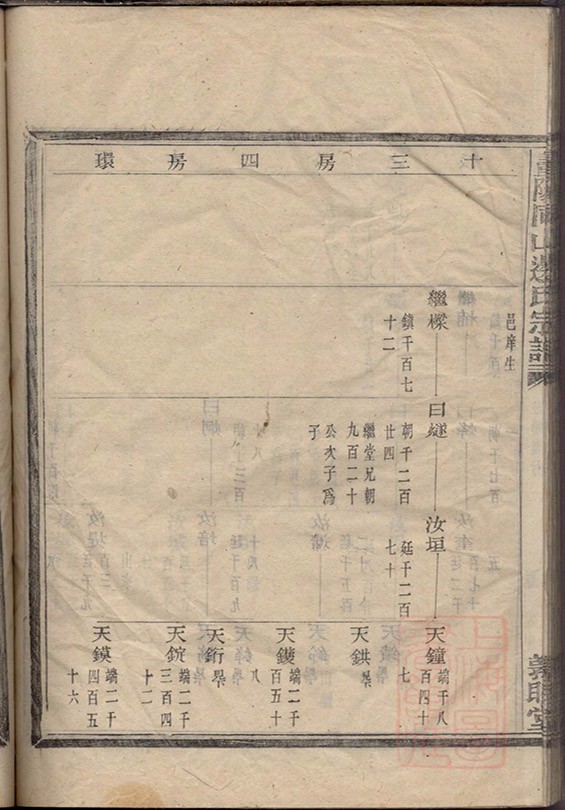 暨陽同山邊氏宗譜
義聚堂
十三房四房環
邑庠生
繼樑
鎮千百七
十二
曰燧
朝千二百
廿四
繼堂兄朝
九百二十
公次子為
子
汝垣
廷千二百
七十
天鐘
端千八
百四十
七
天鉷
天鑊
端二千
百五十
八
天銜
天錠
端二千
三百四
十二
天鏌
端二千
四百五
十六